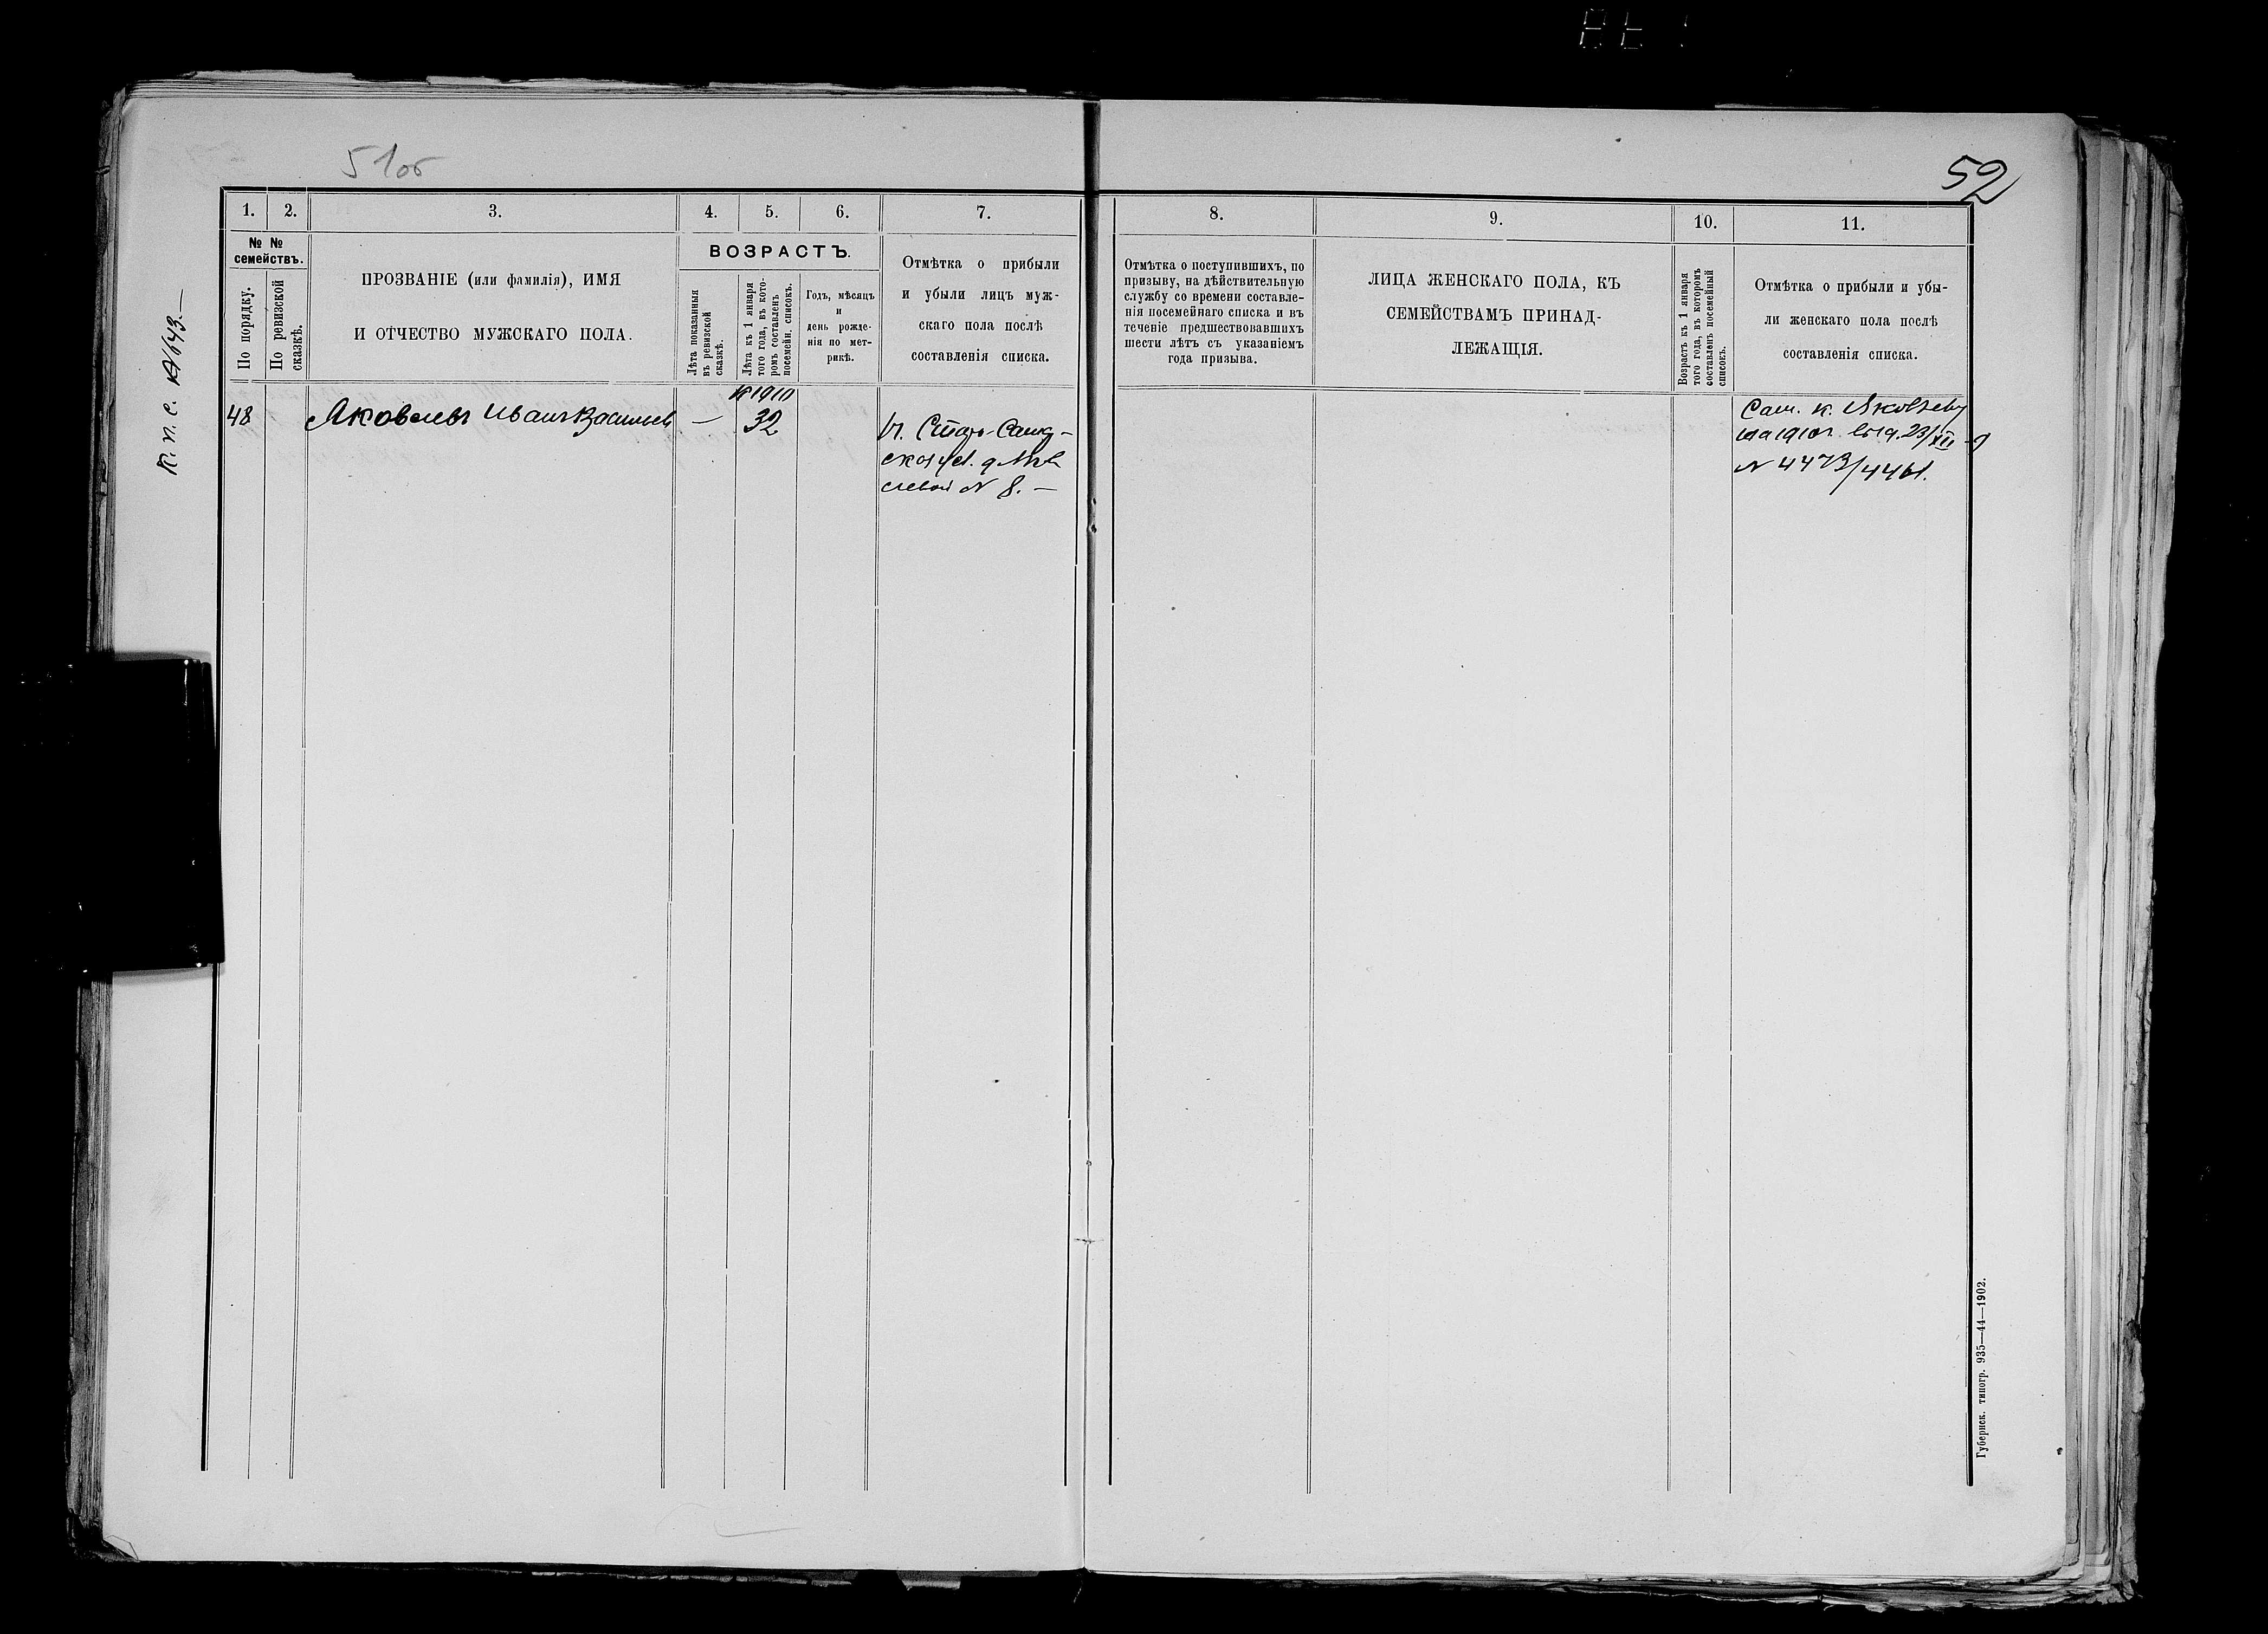 51об
52
К. п. с. №643.—
1.
2.
3.
4.
5.
6.
7.
8.
9.
10.
11.
№ №
семействъ.
По порядку.
По ревизской
сказкѣ.
ПРОЗВАНІЕ (или фамилія), ИМЯ
И ОТЧЕСТВО МУЖСКАГО ПОЛА.
ВОЗРАСТЪ.
Лѣта показанныя
въ ревизской
сказкѣ.
Лѣта къ 1 января
того года, въ кото-
ромъ составленъ
посемейн. списокъ.
Годъ, мѣсяцъ
и
день рожде-
нія по мет-
рикѣ.
Отмѣтка о прибыли
и убыли лицъ муж-
скаго пола послѣ
составленія списка.
Отмѣтка о поступившихъ, по
призыву, на дѣйствительную
службу со времени составле-
нія посемейнаго списка и въ
теченіе предшествовавшихъ
шести лѣтъ съ указаніемъ
года призыва.
ЛИЦА ЖЕНСКАГО ПОЛА, КЪ
СЕМЕЙСТВАМЪ ПРИНАД-
ЛЕЖАЩІЯ.
Возрастъ къ 1 января
того года, въ которомъ
составленъ посемейный
списокъ.
Отмѣтка о прибыли и убы-
ли женскаго пола послѣ
составленія списка.
48
Яковлевъ Иванъ Васильев
—
к 1910
32
№ 8. —
к. Яковлеву
на 1910г. 23/XII
№ 4473/4461.
Губернск. типогр. 935—44—1902.